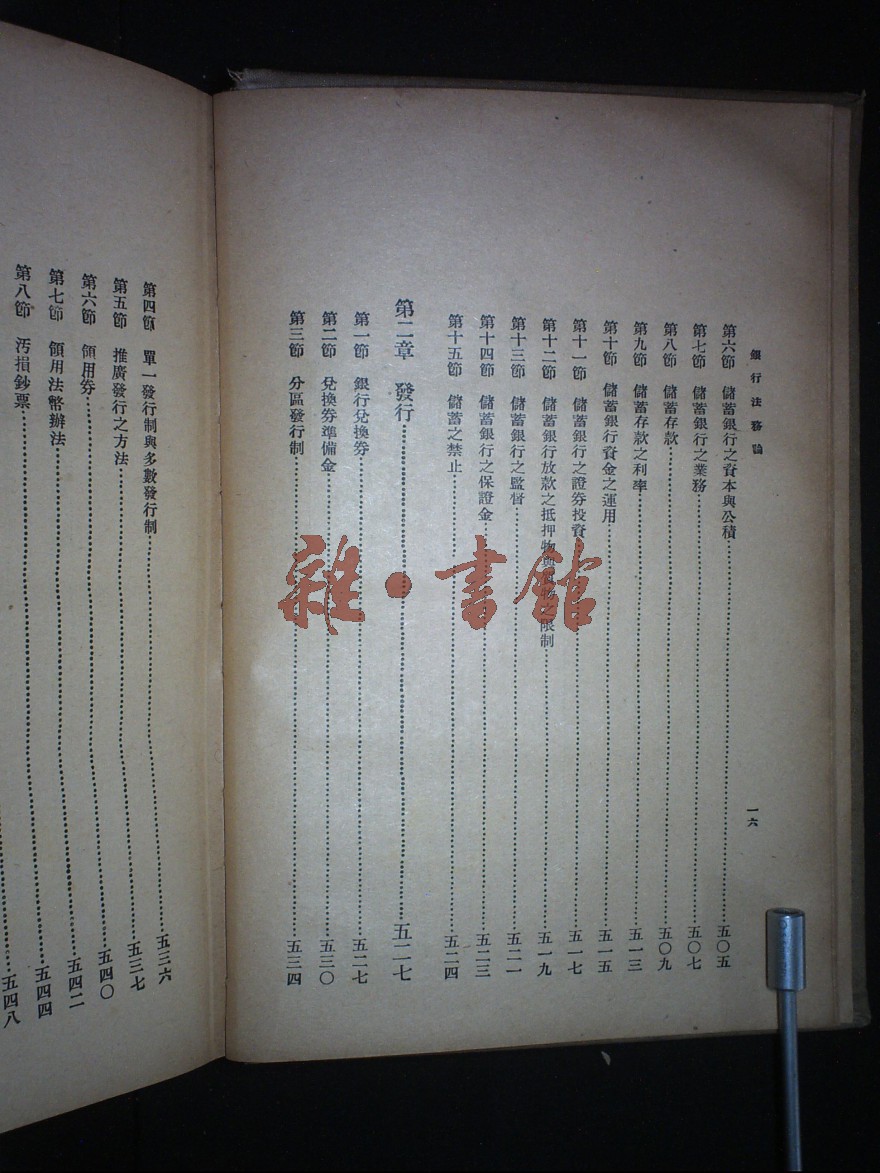 銀行法務論
一六
第六節 儲蓄銀行之資本與公積 五〇五
第七節 儲蓄銀行之業務 五〇七
第八節 儲蓄存款 五〇九
第九節 儲蓄存款之利率 五一三
第十節 儲蓄銀行資金之運用 五一五
第十一節 儲蓄銀行之證券投資 五一七
第十二節 儲蓄銀行放款之抵押物與 限制 五一九
第十三節 儲蓄銀行之監督 五二一
第十四節 儲蓄銀行之保證金 五二三
第十五節 儲蓄之禁止 五二四
第二章 發行 五二七
第一節 銀行兌換券 五二七
第二節 兌換券準備金 五三〇
第三節 分區發行制 五三四
第四節 單一發行制與多數發行制 五三六
第五節 推廣發行之方法 五三七
第六節 領用券 五四〇
第七節 領用法幣辦法 五四二
第八節 污損鈔票 五四四
五四八
雜·書館